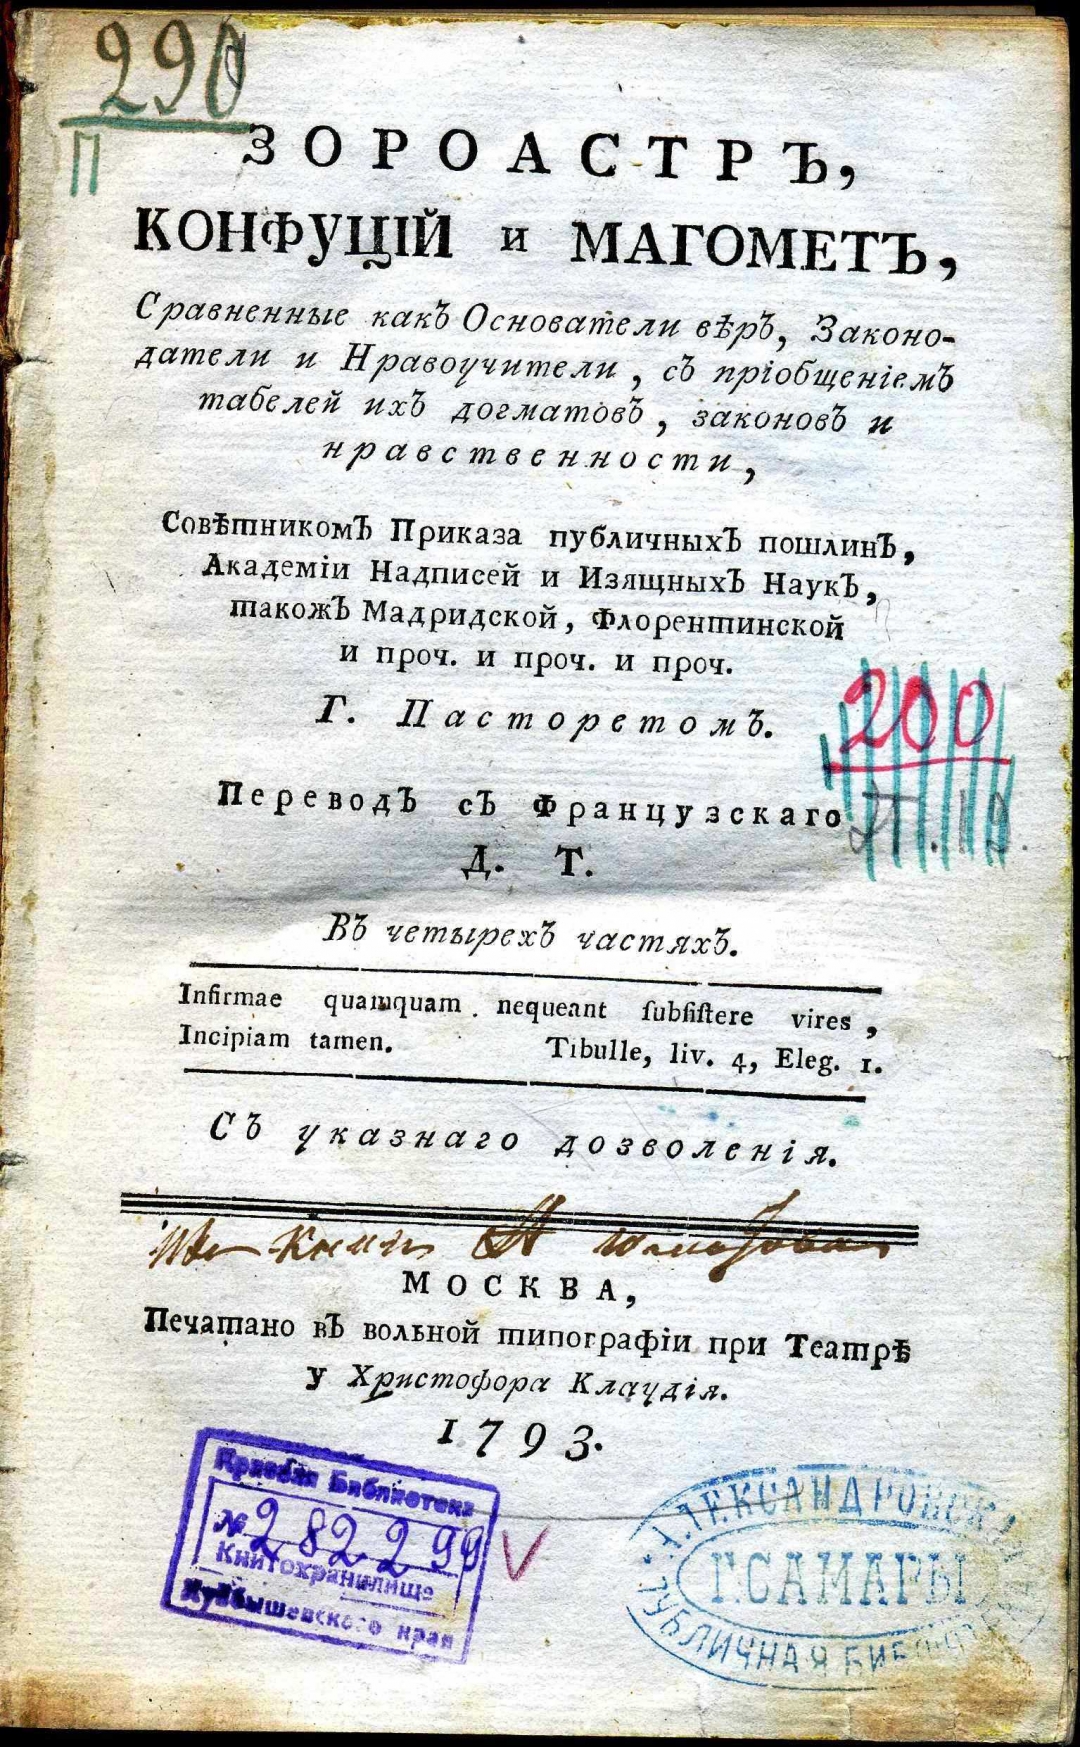 290
П
ЗОРОАСТРЪ,
КОНФУЦІЙ и МАГОМЕТЪ,
Сравненные какъ Основатели вѣръ, Законо-
датели и Нравоучители, съ пріобщеніемъ
табелей ихъ догматовъ, законовъ и
нравственности,
Совѣтникомъ Приказа публичныхъ пошлинъ,
Академіи Надписей и Изящныхъ Наукъ,
такожъ Мадридской, Флорентинской
и проч. и проч. и проч.
Г. Пасторетомъ.
200
Переводъ съ Французскаго
Д. Т.
Въ четырехъ частяхъ.
Infirmae quamquam nequeant ſubſiſtere vires,
Incipiam tamen. Tibulle, liv. 4, Eleg. 1.
Съ указнаго дозволенія.
МОСКВА,
Печатано въ вольной типографіи при Театрѣ
у Христофора Клаудія.
1793.
Краевая Библиотека
№ 282299
Книгохранилище
Куйбышевского края
АЛЕКСАНДРОВСКАЯ
Г. САМАРЫ
ПУБЛИЧНАЯ БИБЛІОТЕКА